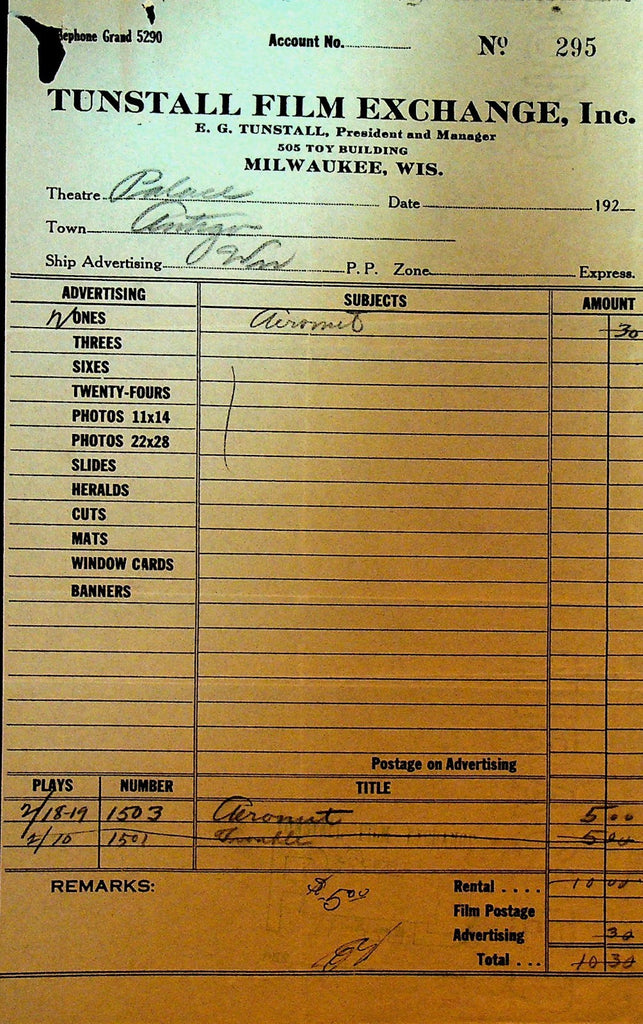 Telephone Grand 5290
Account No.
Nº 295
TUNSTALL FILM EXCHANGE, Inc.
E. G. TUNSTALL, President and Manager
505 TOY BUILDING
MILWAUKEE, WIS.
Theatre Palace Date 192
Town Antigo
Ship Advertising Wis P. P. Zone Express.
ADVERTISING SUBJECTS AMOUNT
ONES 30
THREES
SIXES
TWENTY-FOURS
PHOTOS 11x14
PHOTOS 22x28
SLIDES
HERALDS
CUTS
MATS
WINDOW CARDS
BANNERS
Postage on Advertising
PLAYS NUMBER TITLE
2/18-19 1503 5 00
2/10 1501 5 00
REMARKS: $5.00 Rental .... 10 00
Film Postage
Advertising 30
Total ... 10 30